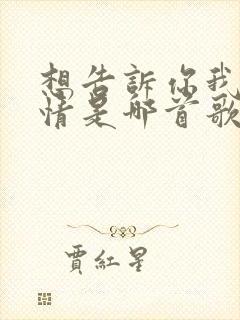 想告訴你我
情是那首歌
賈紅星